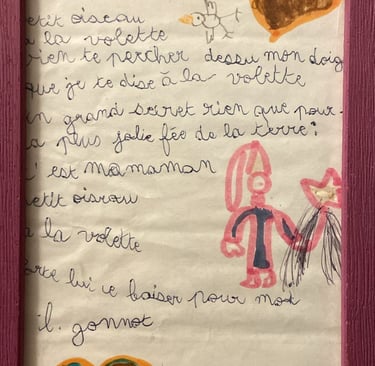 etit oiseau
à la volette
vien te percher dessu mon doig
que je te dise à la volette
un grand secret rien que pour
la plus jolie fée de la terre:
c'est mamaman
etit oiseau
à la volette
orte lui ce baiser pour moi
il. gonnot